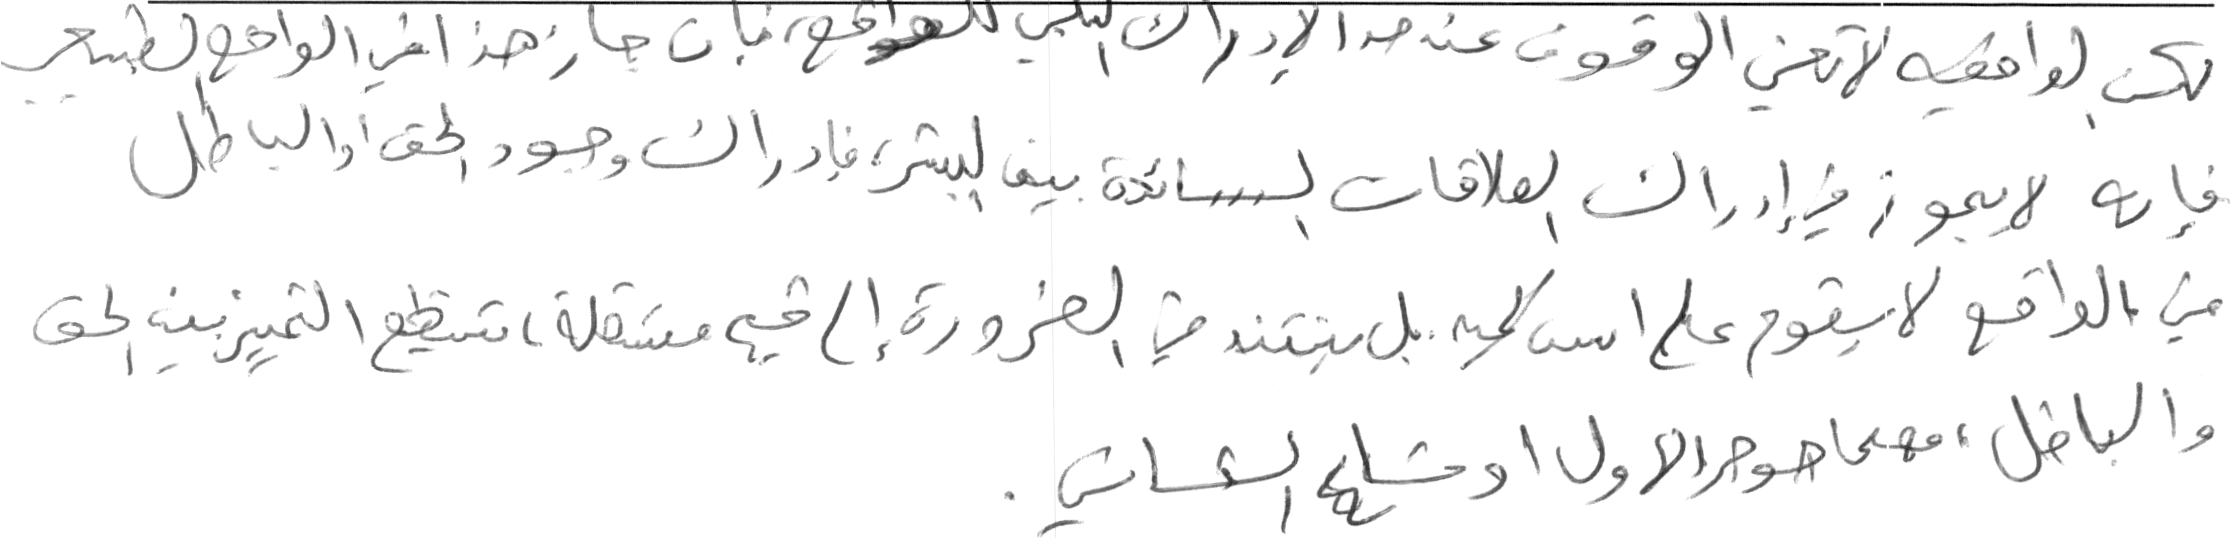 لكن الواقعية لا تعني الوقوف عند هذا الإدراك السلبي للواقع، فإن جاز هذا في الواقع الطبيعي
فإنه لا يجوز في إدراك العلاقات السائدة بين البشر، فإدراك وجود الحق أو الباطل
في الواقع لا يقوم على أسس كمية. بل يستند في الضرورة إلى قيم مستقلة، تستطيع التمييز بين الحق
والباطل، مهما حوصر الأول أو تسلح الثاني.